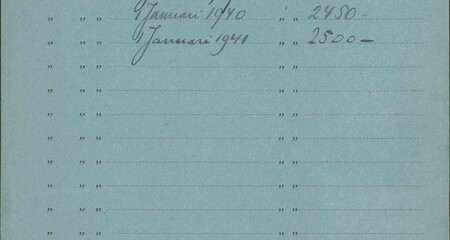 " " " 1 Januari 1940 " " 2450 –
" " " 1 Januari 1941 " " 2500 –
" " " " "
" " " " "
" " " " "
" " " " "
" " " " "
" " " " "
" " " " "
" " " " "